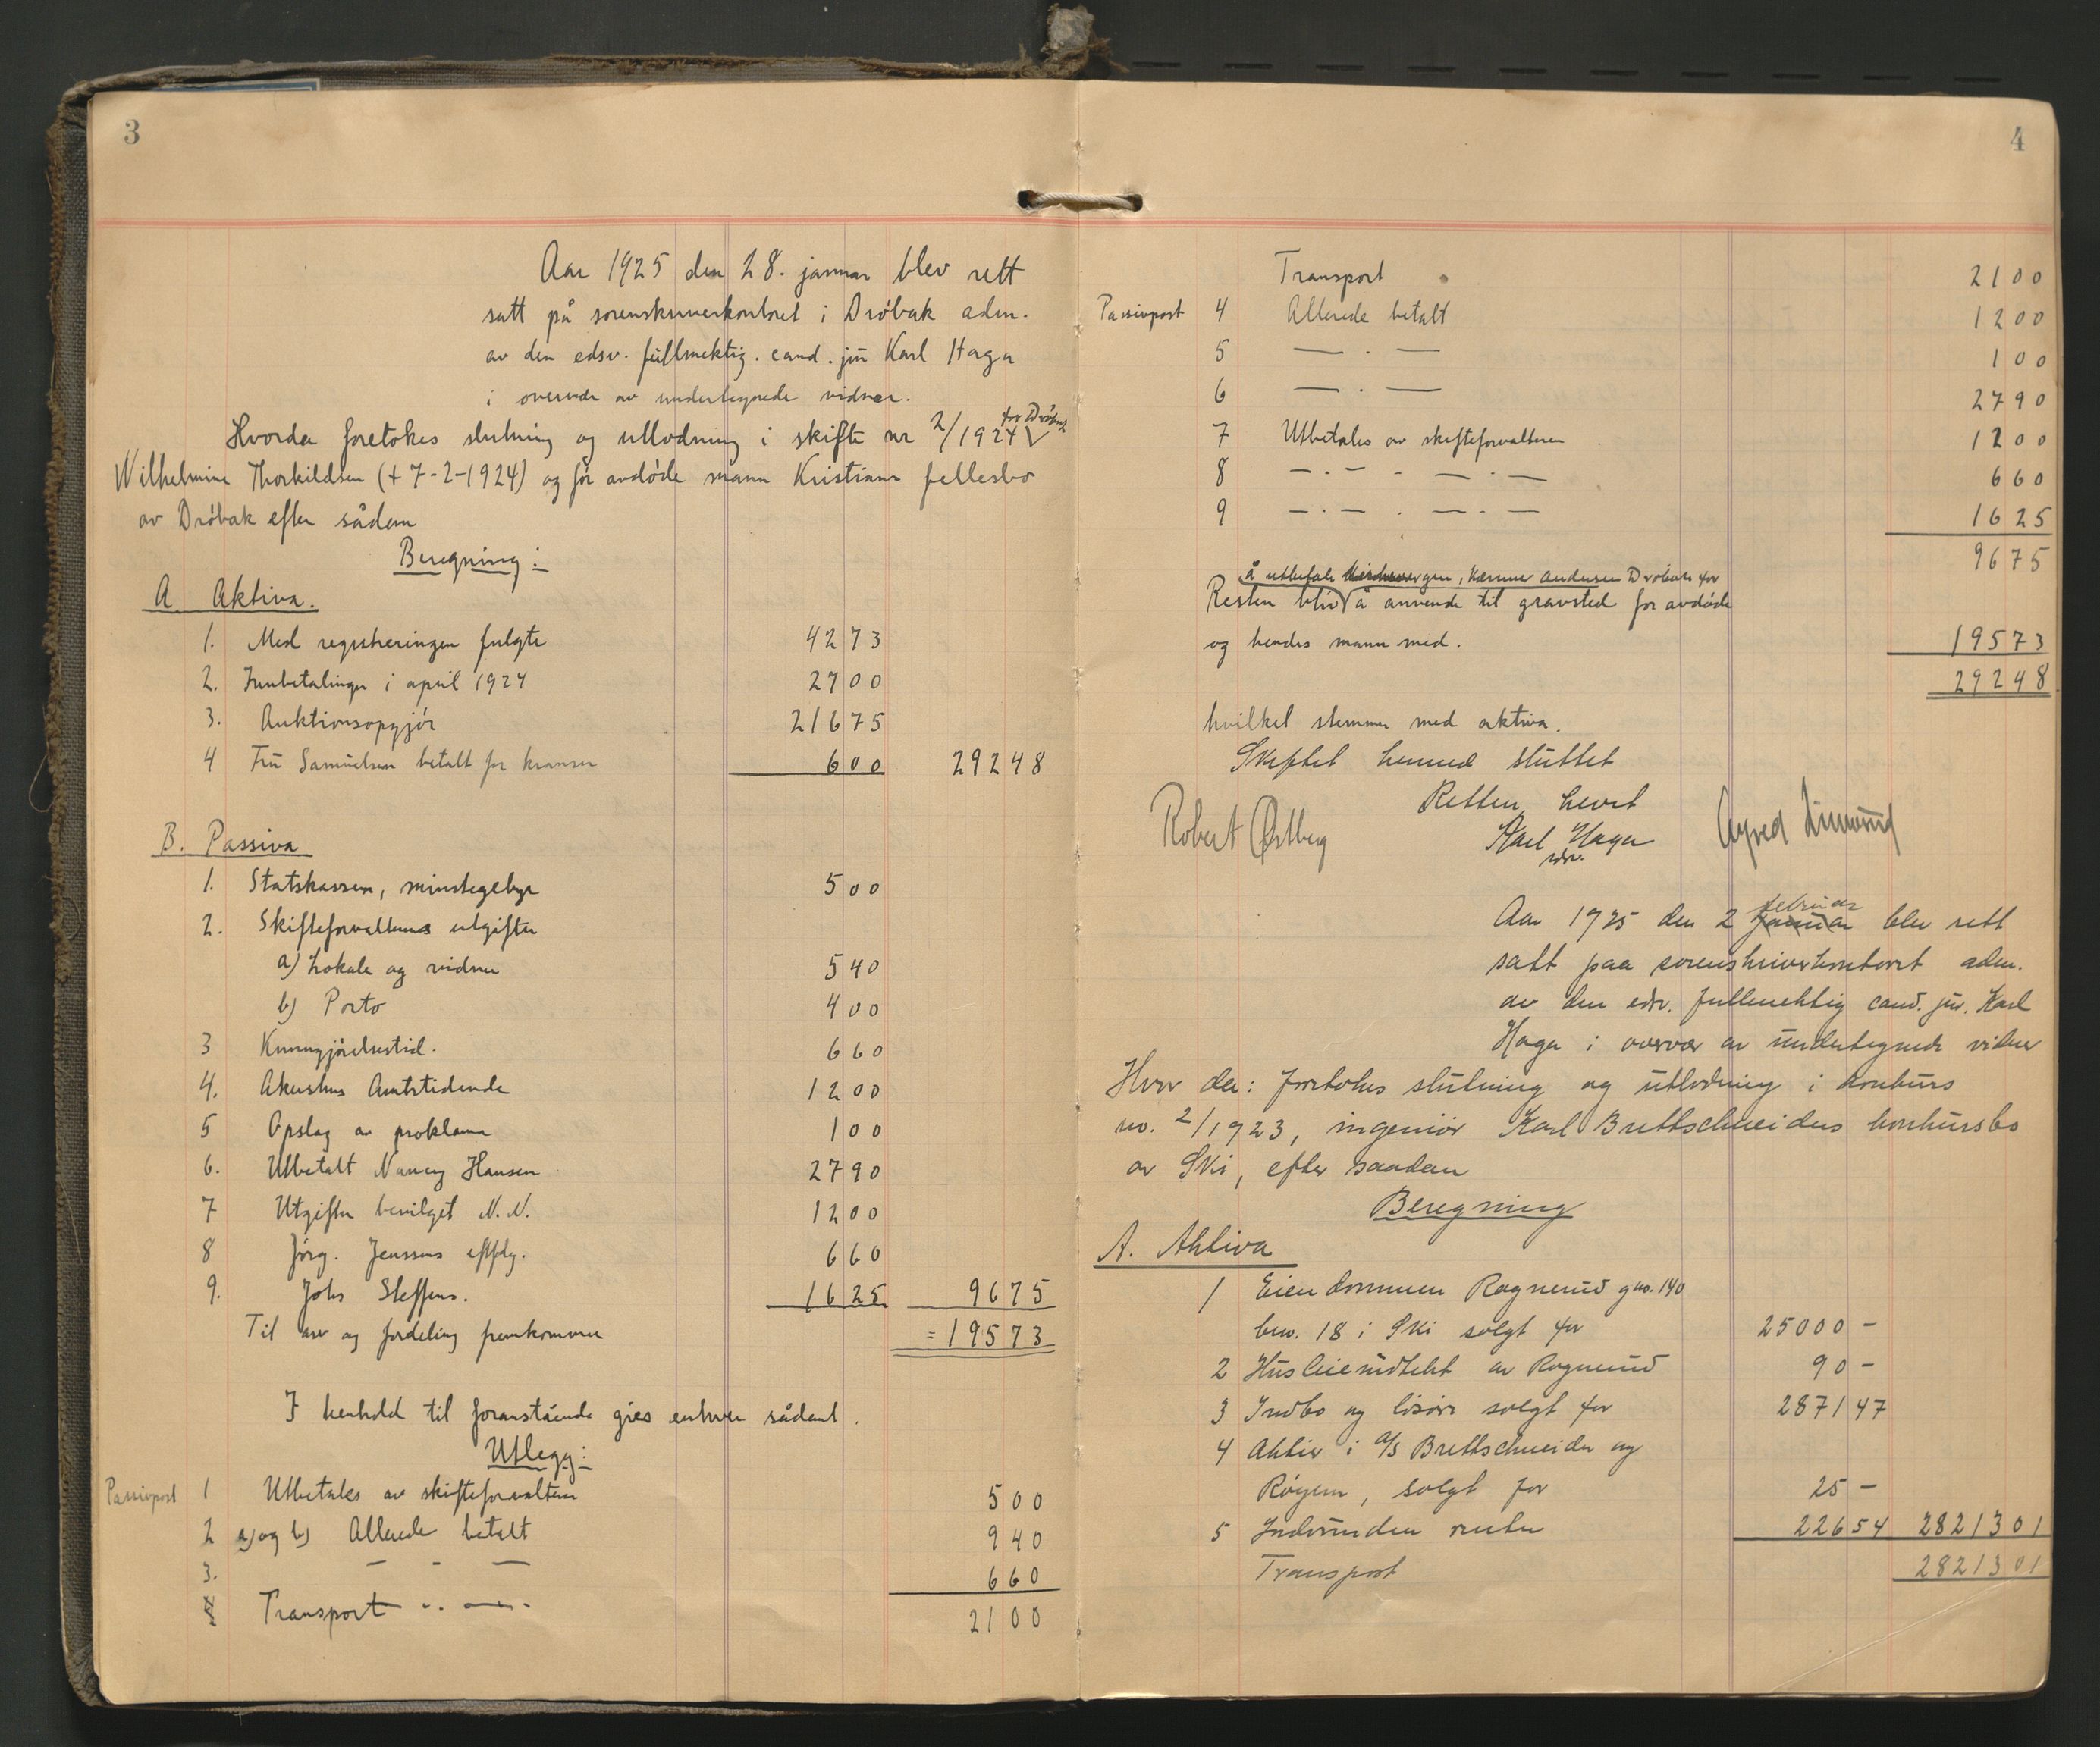 3
Aar 1925 den 28. januar blev rett
satt på sorenskriverkontoret i Drøbak adm.
av den edsv. fullmektig. cand. jur Karl Haga
i overvær av undertegnede vidner.
Hvorda foretokes slutning og utlodning i skifte nr 2/1924 for Drøbak
Wilhelmine Thorkildsen (+ 7-2-1924) og før avdøde mann Kristians fellesbo
av Drøbak efter sådan
Beregning:
A Aktiva.
1. Med registreringen fulgte 4273
2. Innbetalinger i april 1924 2700
3. Auktionsopgjør 21675
4 Fru Samuelsen betalt for kranser 600 29248
B. Passiva
1. Statskassen, minstegebyr 500
2. Skifteforvalterens utgifter
a) Lokale og vidner 540
b) Porto 400
3 Kunngjørelsestid. 660
4. Akershus Amtstidende 1200
5 Opslag av proklama 100
6. Utbetalt Nancy Hansen 2790
7 Utgifter bevilget N.N. 1200
8 Jørg. Jenssens eftflg. 660
9. Johs Steffens. 1625 9675
Til arv og fordeling fremkommer = 19573
I henhold til foranstående gies enhver sådant.
Utlegg:
Passivpost 1 Utbetales av skifteforvalteren 500
2 a) og b) Allerede betalt 940
3. — - — 660
Transport 2100
4
Transport 2100
Passivpost 4 Allerede betalt 1200
5 — . — 100
6 — . — 2790
7 Utbetales av skifteforvalteren 1200
8 — . — . — . — 660
9 — . — . — . — 1625
9675
å utbetale kæmner Andersen Drøbak for
Resten blir å anvende til gravsted for avdøde
og hendes mann med. 19573
29248
hvilket stemmer med aktiva.
Skiftet hermed sluttet
Retten hevet
Robert Østberg Karl Haga
edsv.
Aar 1925 den 2 januar februar blev rett
satt paa sorenskriverkontoret adm.
av den edsv. fullmektig cand. jur. Karl
Haga i overvær av undertegnede vidner
Hvor da: foretokes slutning og utlodning i konkurs
no. 2/1923, ingeniør Karl Brettschneiders konkursbo
av Ski, efter saadan
Beregning
A. Aktiva
1 Eiendommen Rognerud gno. 140
bno. 18 i Ski solgt for 25000 -
2 Husleieindtekt av Rognerud 90 -
3 Indbo og løsøre solgt for 2871 47
4 Aktier i A/S Brettschneider og
Røyem, solgt for 25 -
5 Indvunden renter 226 54 28213 01
Transport 28213 01